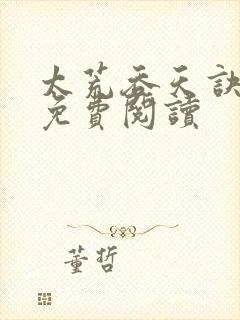 太荒吞天訣
免費閱讀
董哲